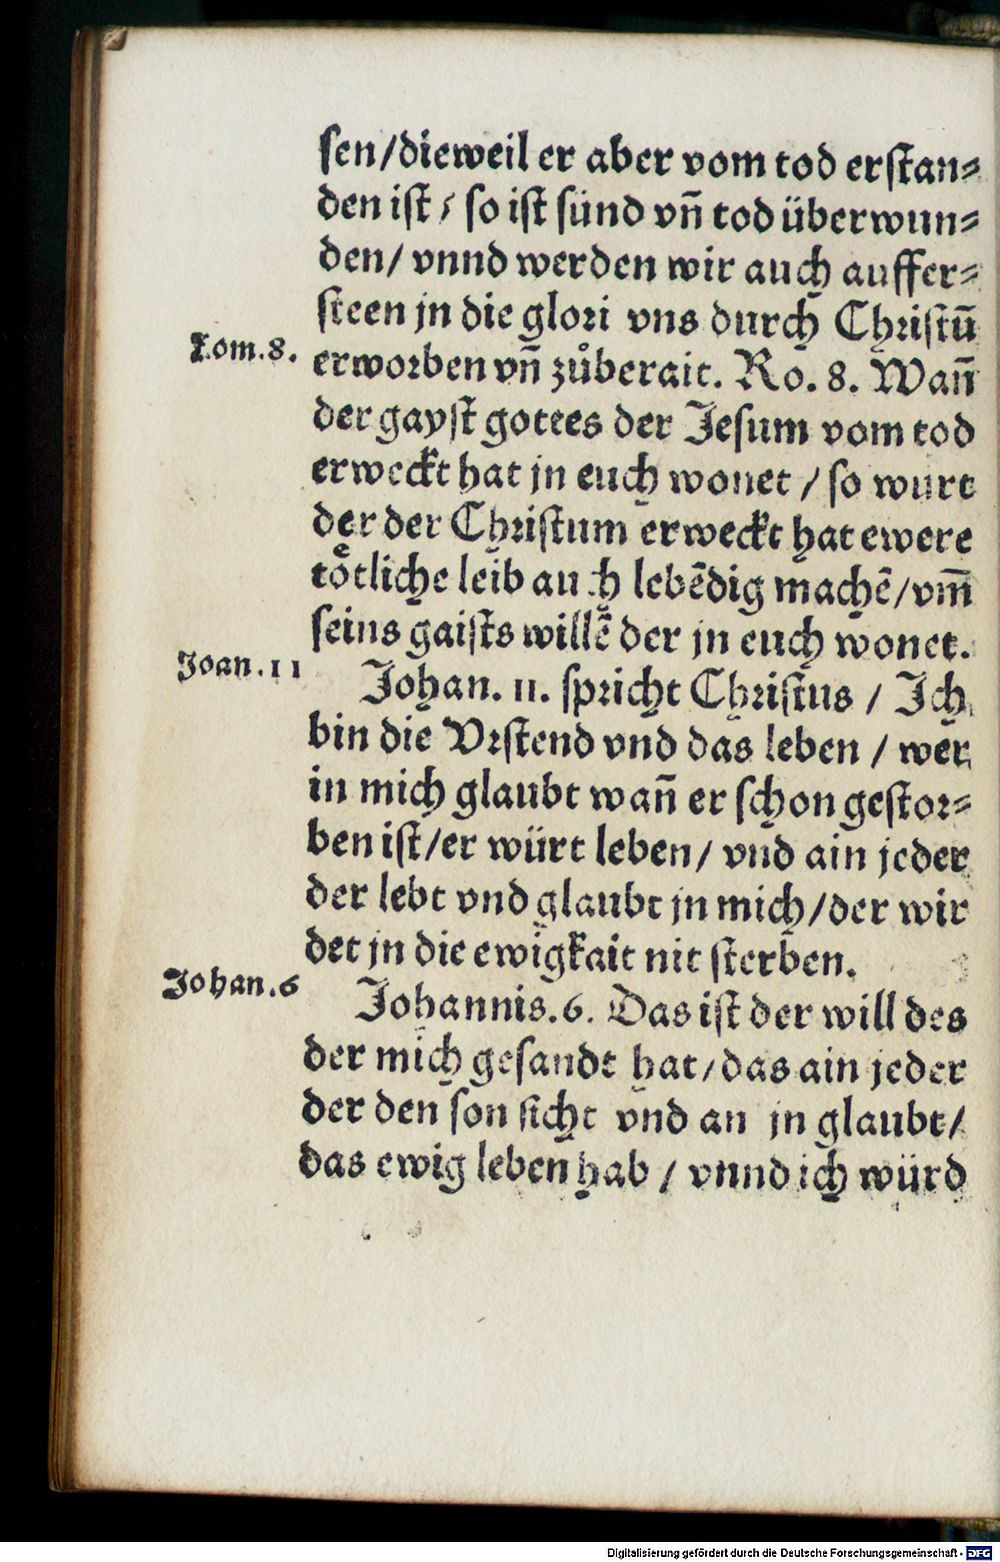 sen/dieweil er aber vom tod erstan⸗
den ist/ so ist sünd vñ tod überwun⸗
den/ vnnd werden wir auch auffer⸗
steen jn die glori vns durch Christũ
Rom.8.
erworben vñ zůberait. Ro. 8. Wañ
der gayst gottes der Jesum vom tod
erweckt hat jn euch wonet / so wurt
der der Christum erweckt hat ewere
toͤtliche leib auch lebẽdig machẽ/vm̃
seins gaists willẽ der jn euch wonet.
Joan.11
Johan. 11. spricht Christus / Ich
bin die Vrstend vnd das leben / wer
in mich glaubt wañ er schon gestor⸗
ben ist/er würt leben/ vnd ain jeder
der lebt vnd glaubt jn mich/der wir
det jn die ewigkait nit sterben.
Johan.6
Johannis.6. Das ist der will des
der mich gesandt hat/das ain jeder
der den son sicht vnd an jn glaubt/
das ewig leben hab / vnnd ich würd
Digitalisierung gefördert durch die Deutsche Forschungsgemeinschaft - DFG